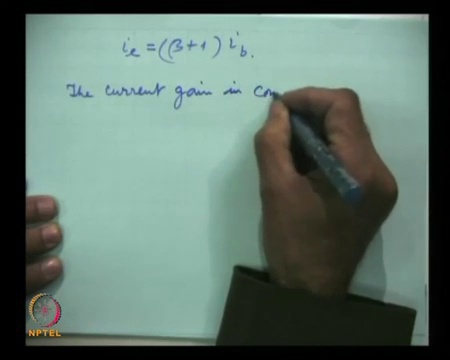 ie = (β+1) ib.
The current gain in com
NPTEL